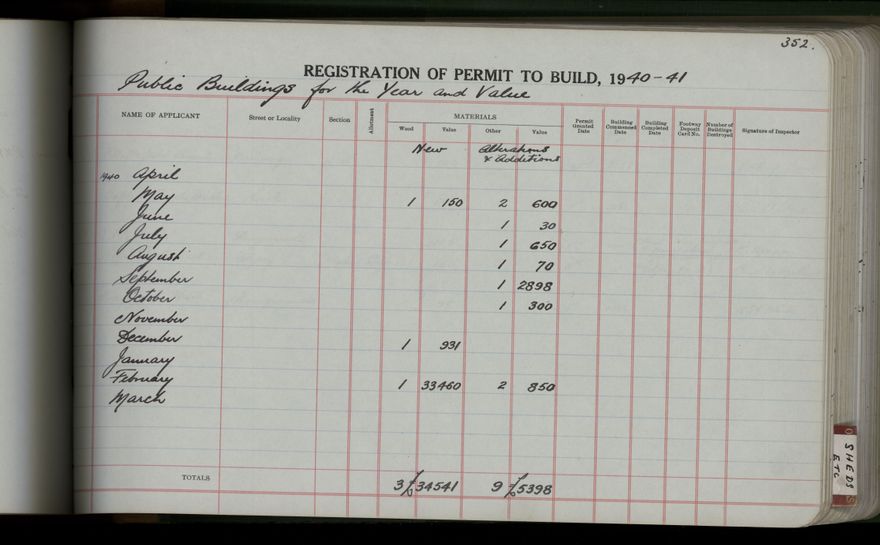 352.
REGISTRATION OF PERMIT TO BUILD, 1940-41
Public Buildings for the Year and Value
NAME OF APPLICANT Street or Locality Section Allotment MATERIALS Permit Granted Date Building Commenced Date Building Completed Date Footway Deposit Card No. Number of Buildings Destroyed Signature of Inspector
Wood Value Other Value
New Alterations
& Additions
1940 April
May 1 150 2 600
June 1 30
July 1 650
August 1 70
September 1 2898
October 1 300
November
December 1 931
January
February 1 33460 2 850
March
TOTALS 3 £34541 9 £5398
SHEDS
ETC